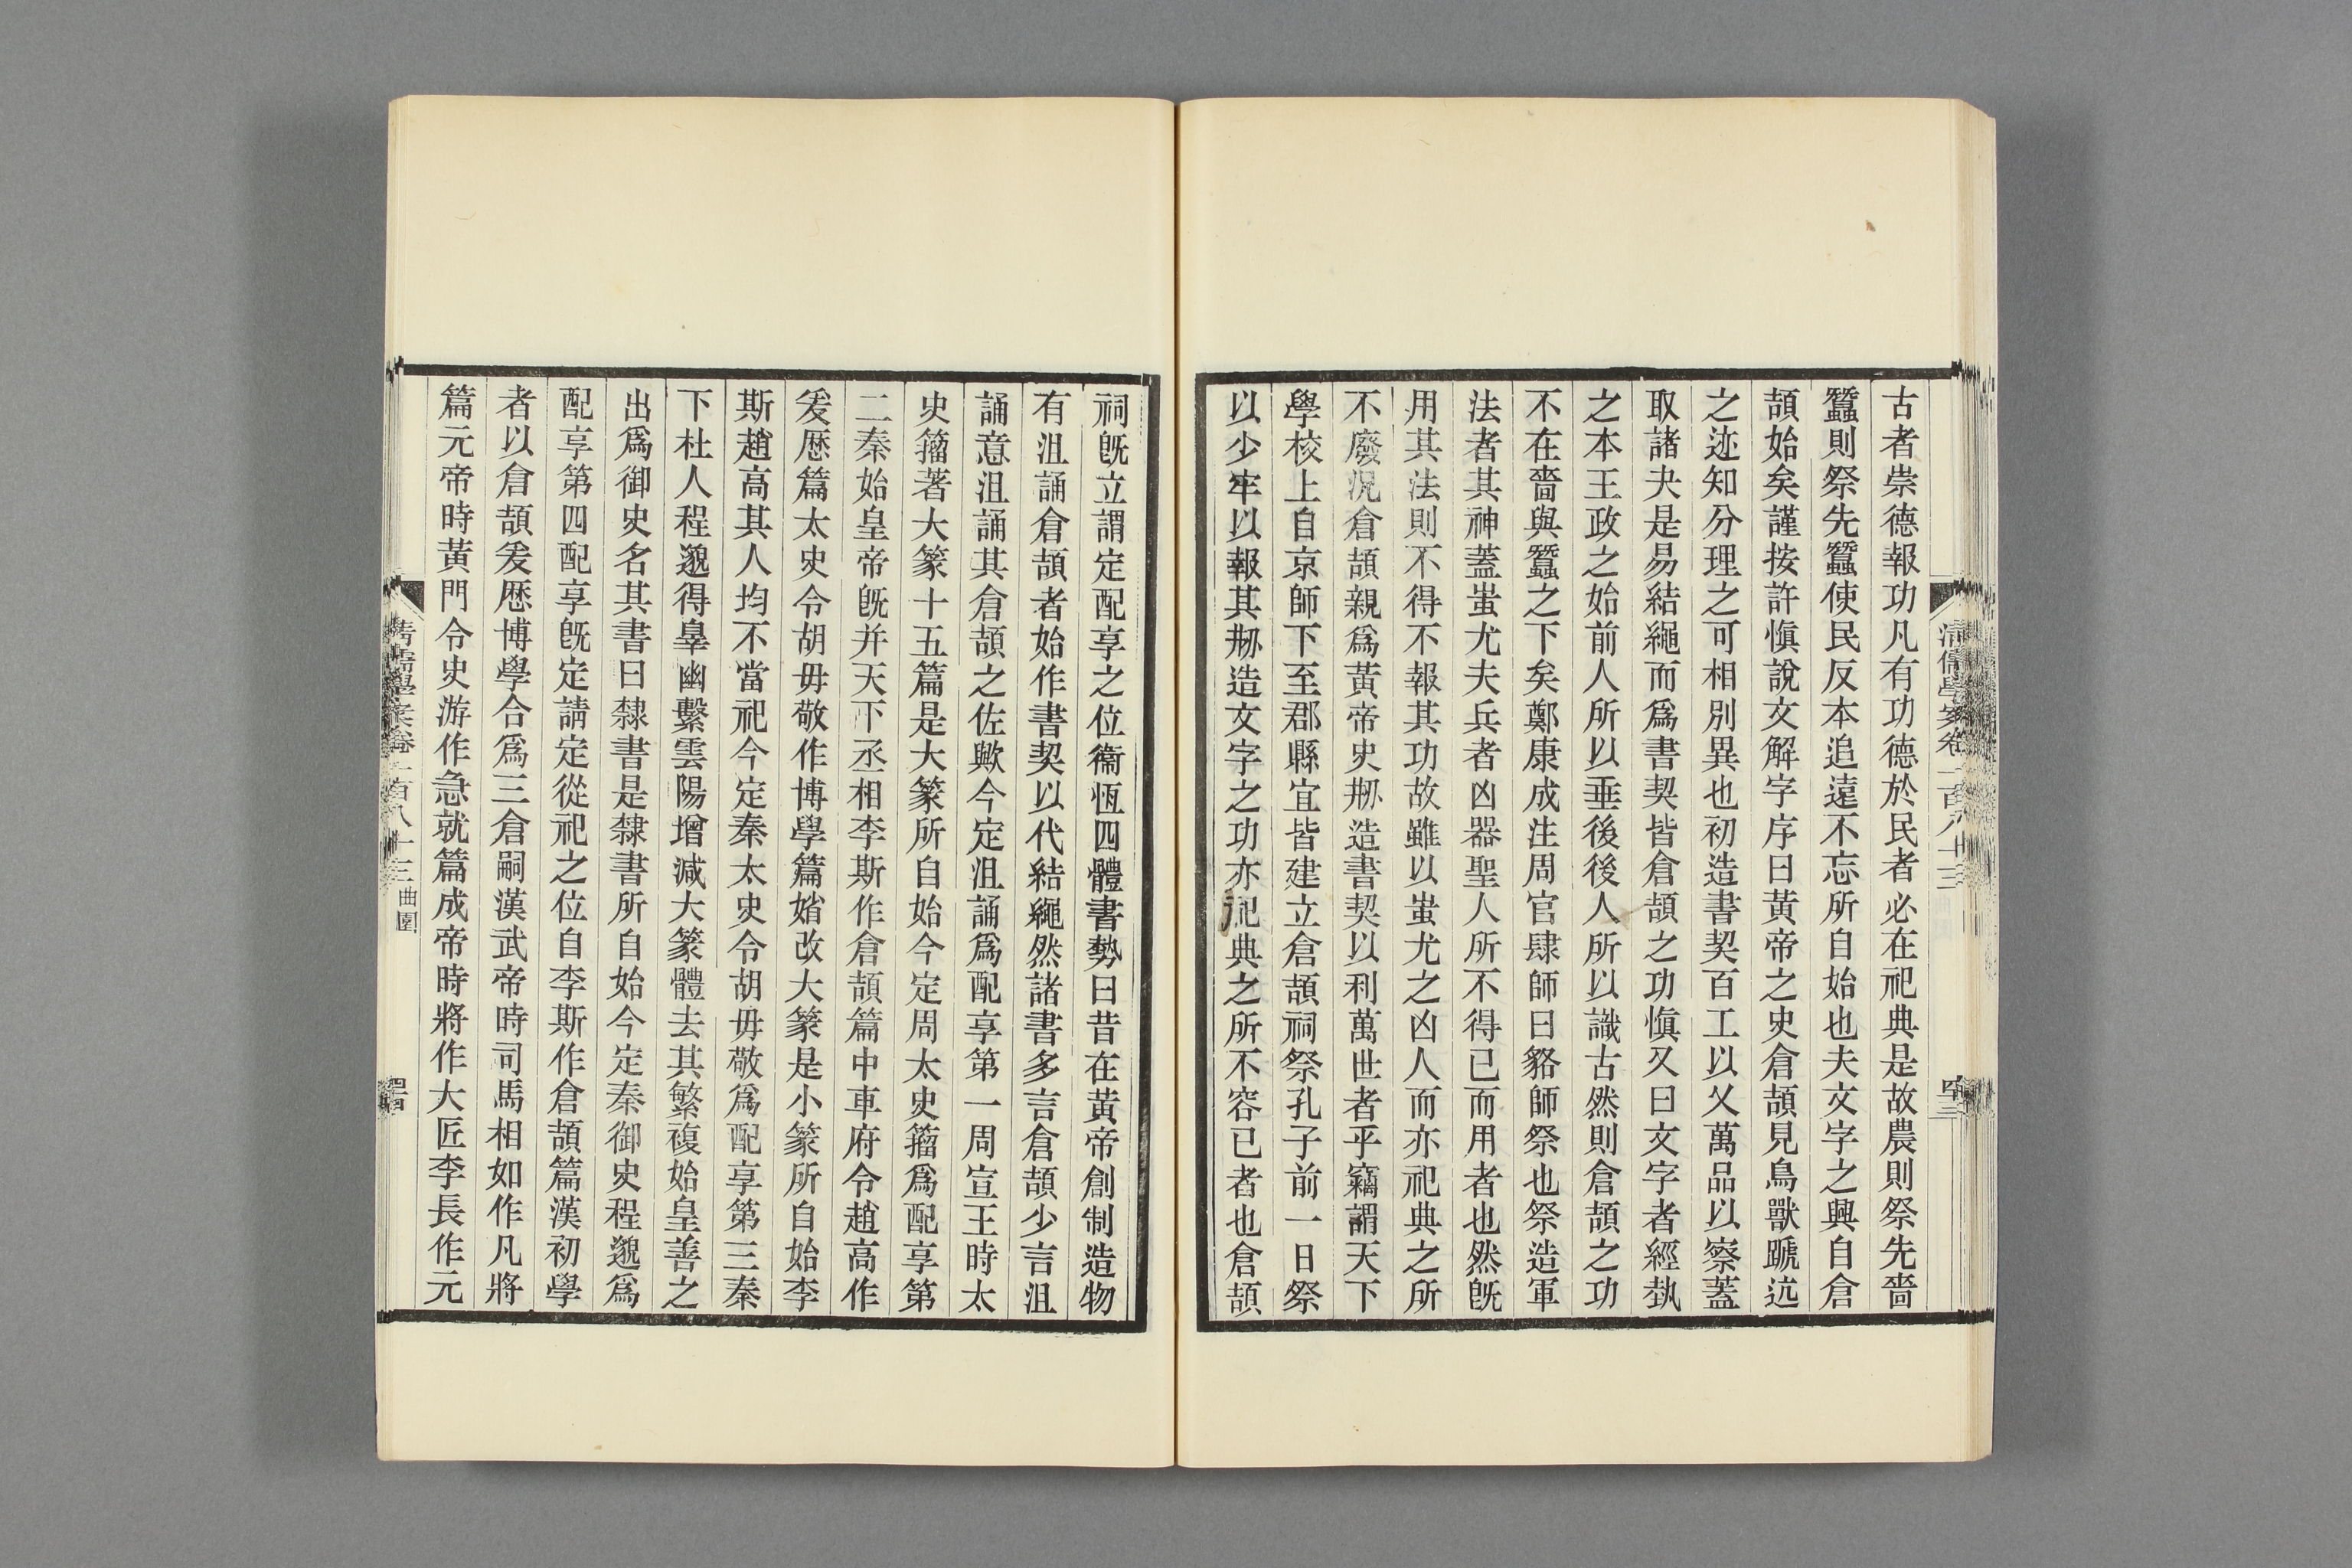 古者崇德報功凡有功德於民者必在祀典是故農則祭先嗇
蠶則祭先蠶使民反本追遠不忘所自始也夫文字之興自倉
頡始矣謹按許愼說文解字序曰黃帝之史倉頡見鳥獸蹏迒
之迹知分理之可相別異也初造書契百工以乂萬品以察蓋
取諸夬是易結繩而爲書契皆倉頡之功愼又曰文字者經埶
之本王政之始前人所以垂後後人所以識古然則倉頡之功
不在嗇與蠶之下矣鄭康成注周官肆師曰貉師祭也祭造軍
法者其神蓋蚩尤夫兵者凶器聖人所不得已而用者也然旣
用其法則不得不報其功故雖以蚩尤之凶人而亦祀典之所
不廢況倉頡親爲黃帝史剏造書契以利萬世者乎竊謂天下
學校上自京師下至郡縣宜皆建立倉頡祠祭孔子前一日祭
以少牢以報其剏造文字之功亦祀典之所不容已者也倉頡
清儒學案卷一百八十三
四十三
祠旣立謂定配享之位衞恆四體書勢曰昔在黃帝創制造物
有沮誦倉頡者始作書契以代結繩然諸書多言倉頡少言沮
誦意沮誦其倉頡之佐歟今定沮誦爲配享第一周宣王時太
史籀著大篆十五篇是大篆所自始今定周太史籀爲配享第
二秦始皇帝旣并天下丞相李斯作倉頡篇中車府令趙高作
爰歷篇太史令胡毋敬作博學篇媘改大篆是小篆所自始李
斯趙高其人均不當祀今定秦太史令胡毋敬爲配享第三秦
下杜人程邈得辠幽繫雲陽增減大篆體去其繁複始皇善之
出爲御史名其書曰隸書是隸書所自始今定秦御史程邈爲
配享第四配享旣定請定從祀之位自李斯作倉頡篇漢初學
者以倉頡爰歷博學合爲三倉嗣漢武帝時司馬相如作凡將
篇元帝時黃門令史游作急就篇成帝時將作大匠李長作元
清儒學案卷一百八十三 曲園
四十四